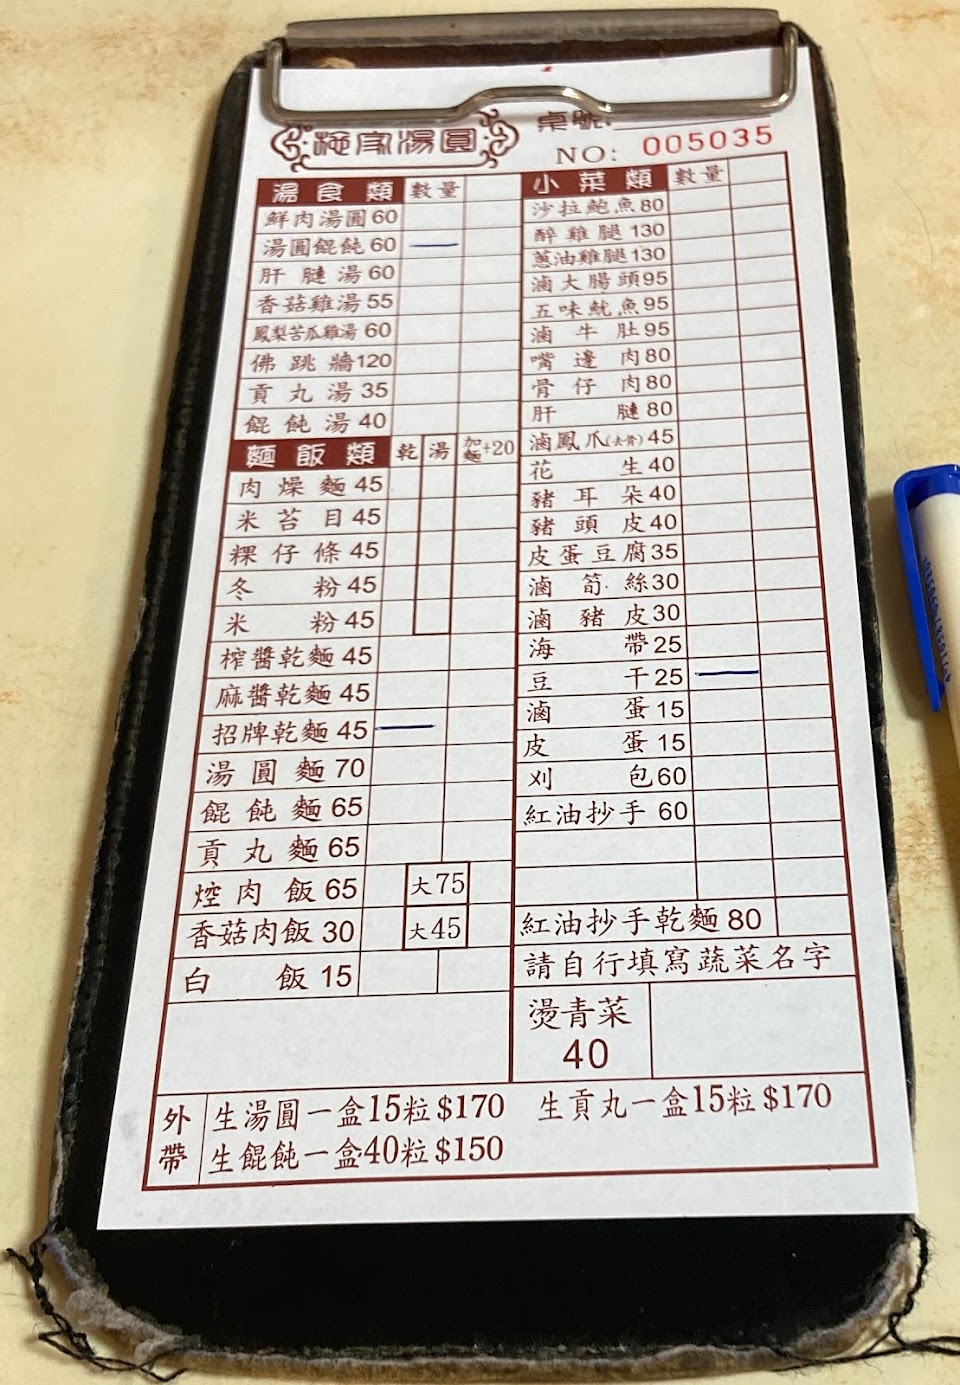 施家湯圓
桌號:
NO: 005035
湯食類 數量
鮮肉湯圓 60
湯圓餛飩 60 一
肝膉湯 60
香菇雞湯 55
鳳梨苦瓜雞湯 60
佛跳牆 120
貢丸湯 35
餛飩湯 40
麵飯類 乾 湯 加麵+20
肉燥麵 45
米苔目 45
粿仔條 45
冬粉 45
米粉 45
榨醬乾麵 45
麻醬乾麵 45
招牌乾麵 45 一
湯圓麵 70
餛飩麵 65
貢丸麵 65
焢肉飯 65 大75
香菇肉飯 30 大45
白飯 15
小菜類 數量
沙拉鮑魚 80
醉雞腿 130
蔥油雞腿 130
滷大腸頭 95
五味魷魚 95
滷牛肚 95
嘴邊肉 80
骨仔肉 80
肝膉 80
滷鳳爪(去骨) 45
花生 40
豬耳朵 40
豬頭皮 40
皮蛋豆腐 35
滷筍絲 30
滷豬皮 30
海帶 25
豆干 25 一
滷蛋 15
皮蛋 15
刈包 60
紅油抄手 60
紅油抄手乾麵 80
請自行填寫蔬菜名字
燙青菜
40
外帶
生湯圓一盒15粒$170 生貢丸一盒15粒$170
生餛飩一盒40粒$150